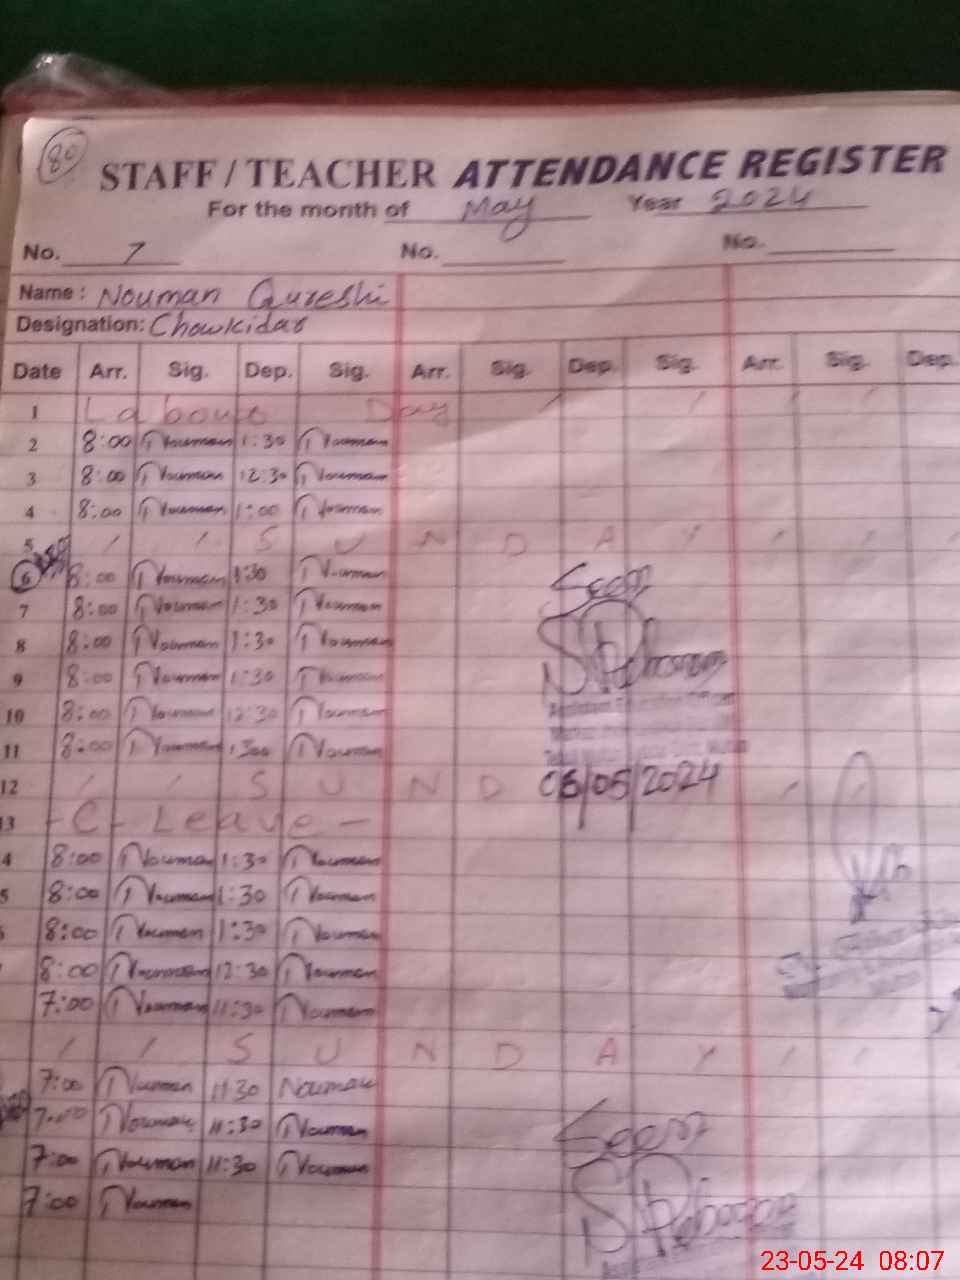 80
STAFF / TEACHER ATTENDANCE REGISTER
For the month of May Year 2024
No. 7 No. No.
Name: Nouman Qureshi
Designation: Chowkidar
Date Arr. Sig. Dep. Sig. Arr. Sig. Dep. Sig. Arr. Sig. Dep.
1 Labour Day
2 8:00 Nouman 1:30 Nouman
3 8:00 Nouman 12:30 Nouman
4 8:00 Nouman 1:00 Nouman
5 SUNDAY
6 8:00 Nouman 1:30 Nouman
Seen
7 8:00 Nouman 1:30 Nouman
8 8:00 Nouman 1:30 Nouman
9 8:00 Nouman 1:30 Nouman
10 8:00 Nouman 12:30 Nouman
Assistant Education Officer
11 8:00 Nouman 1:00 Nouman
12 SUND 06/05/2024
13 - C - Leave -
4 8:00 Nouman 1:30 Nouman
5 8:00 Nouman 1:30 Nouman
8:00 Nouman 1:30 Nouman
8:00 Nouman 12:30 Nouman
7:00 Nouman 11:30 Nouman
SUNDAY
7:00 Nouman 11:30 Nouman
7:00 Nouman 11:30 Nouman
Seen
7:00 Nouman 11:30 Nouman
7:00 Nouman
23-05-24 08:07